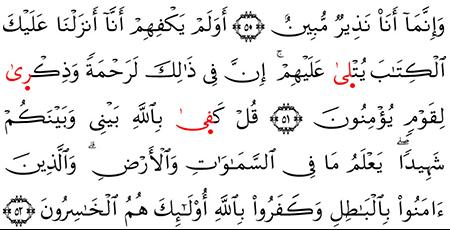 وَإِنَّمَآ أَنَا۠ نَذِيرٌ مُّبِينٌ ۝٥٠ أَوَلَمْ يَكْفِهِمْ أَنَّآ أَنزَلْنَا عَلَيْكَ
ٱلْكِتَٰبَ يُتْلَىٰ عَلَيْهِمْ ۚ إِنَّ فِى ذَٰلِكَ لَرَحْمَةً وَذِكْرَىٰ
لِقَوْمٍ يُؤْمِنُونَ ۝٥١ قُلْ كَفَىٰ بِٱللَّهِ بَيْنِى وَبَيْنَكُمْ
شَهِيدًا ۖ يَعْلَمُ مَا فِى ٱلسَّمَٰوَٰتِ وَٱلْأَرْضِ ۗ وَٱلَّذِينَ
ءَامَنُوا۟ بِٱلْبَٰطِلِ وَكَفَرُوا۟ بِٱللَّهِ أُو۟لَٰٓئِكَ هُمُ ٱلْخَٰسِرُونَ ۝٥٢